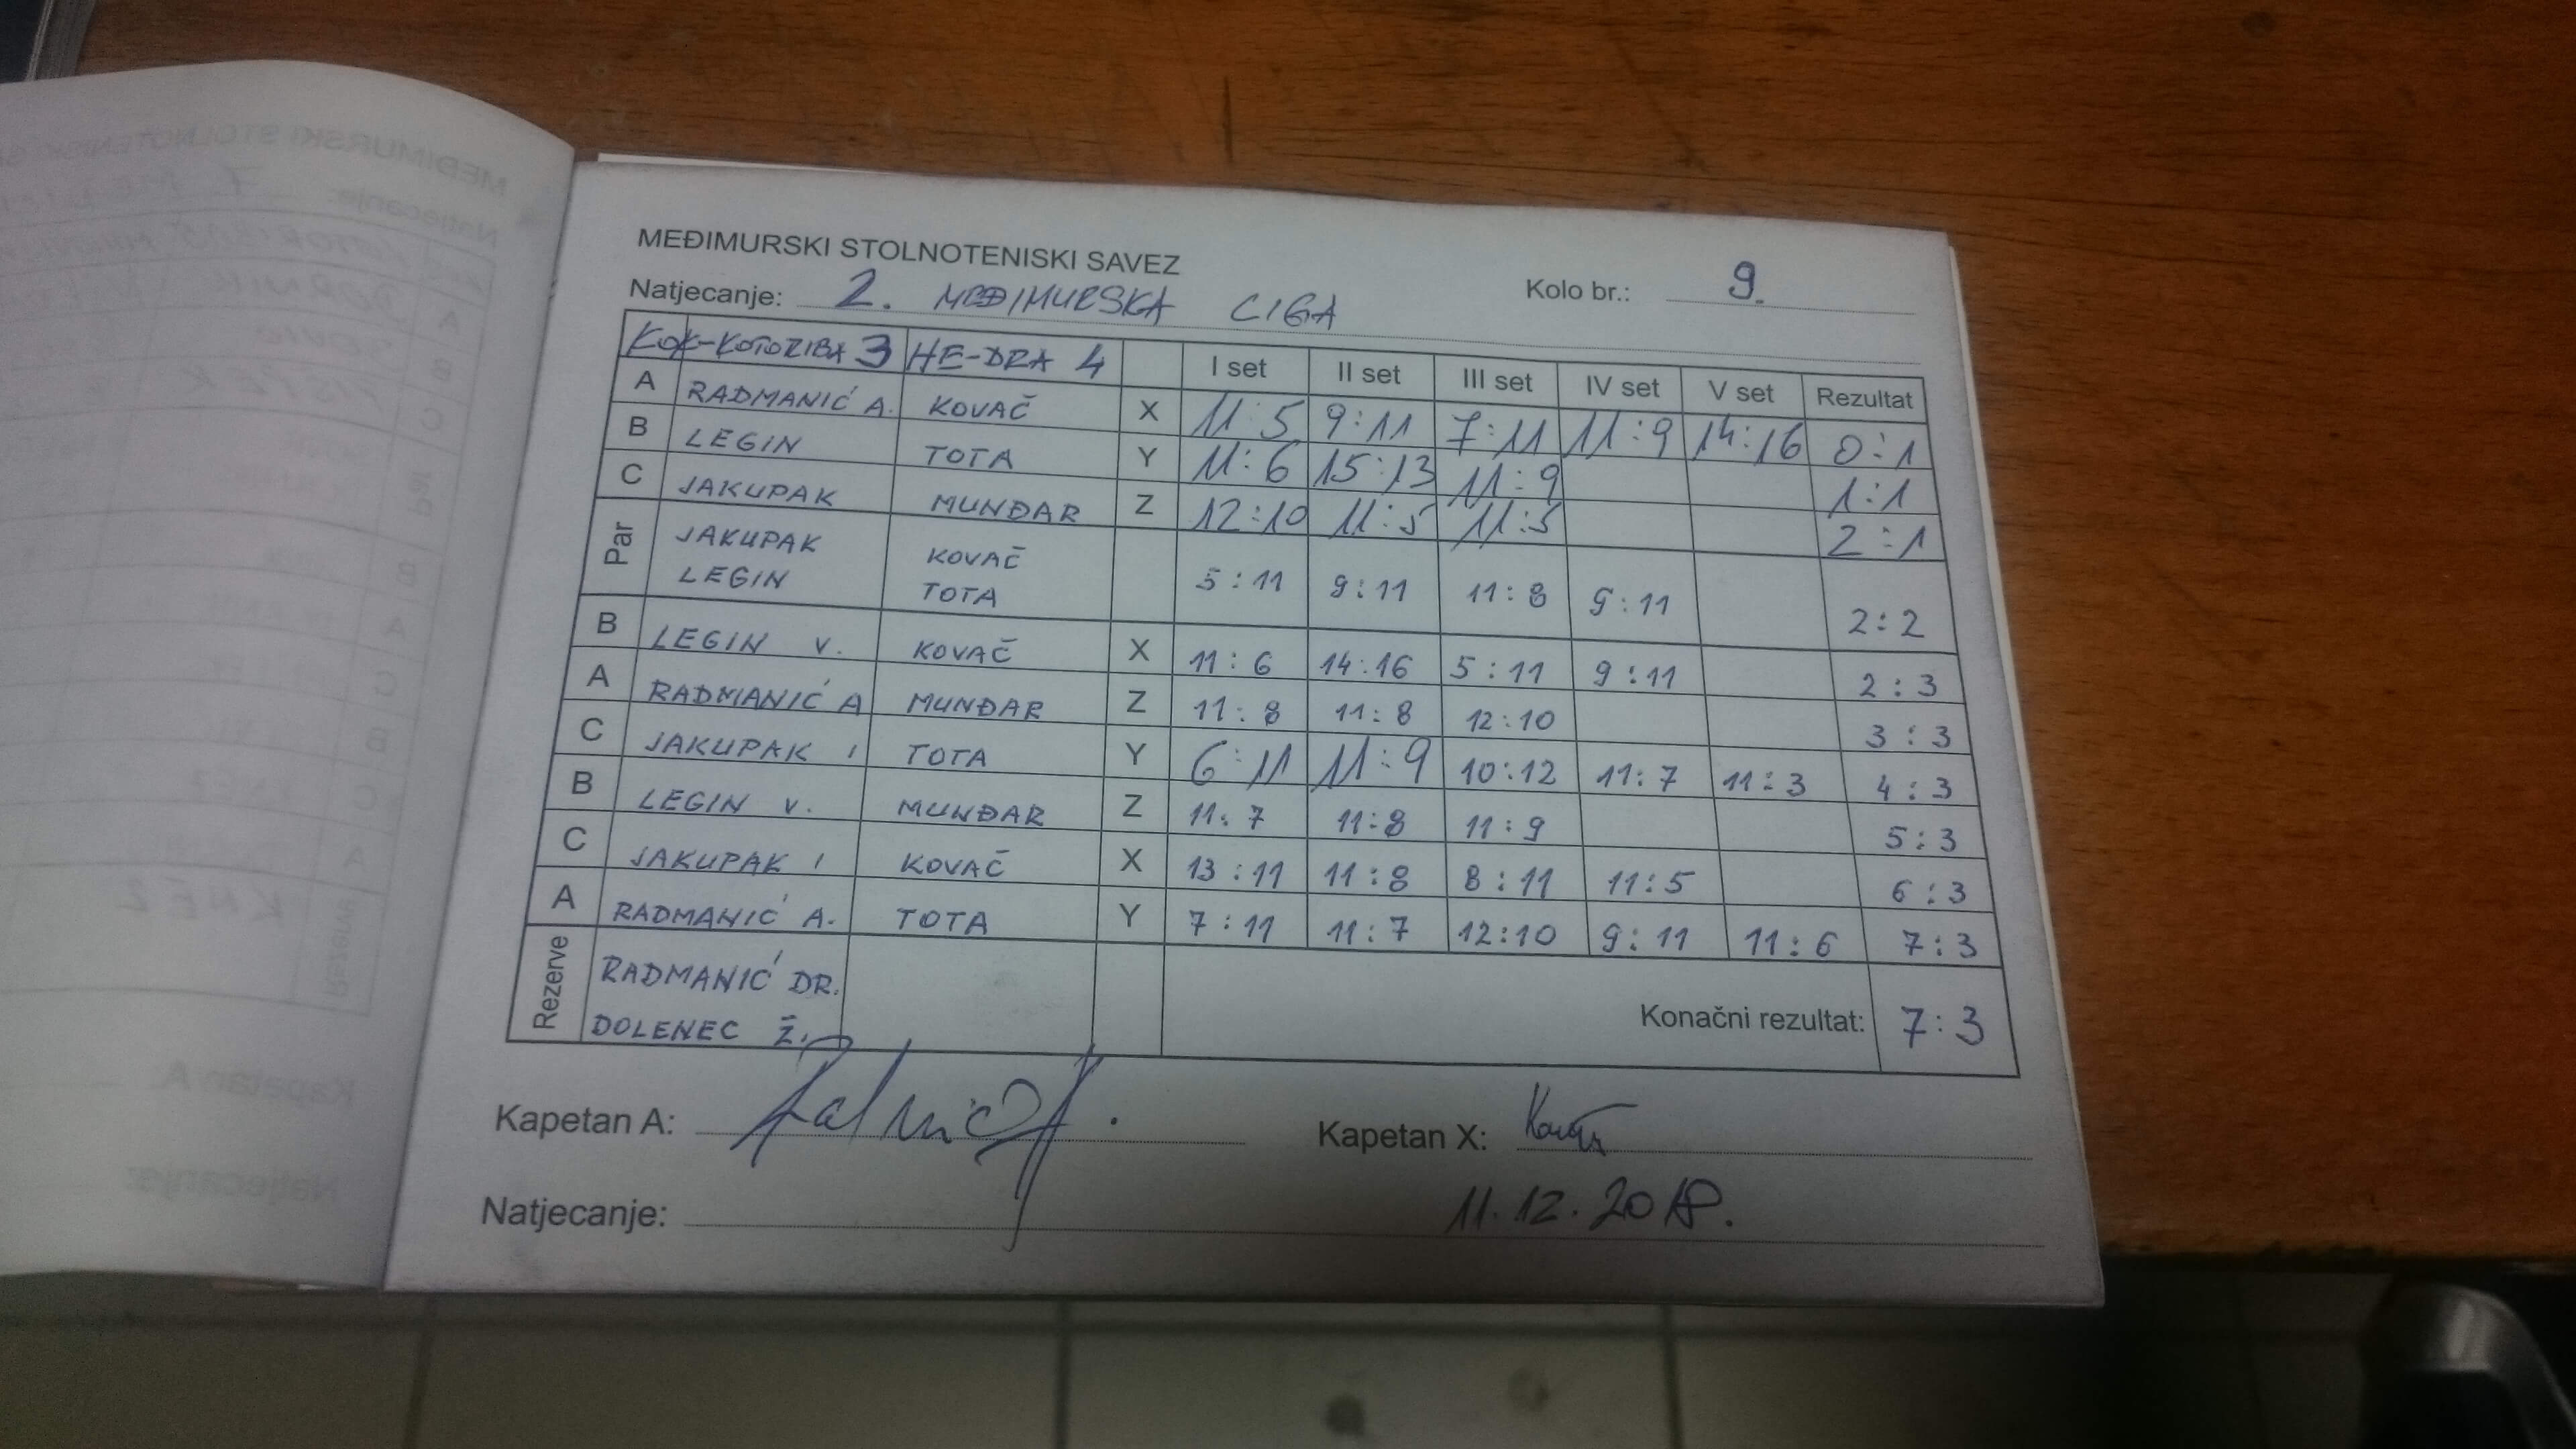 MEĐIMURSKI STOLNOTENISKI SAVEZ
Natjecanje: 2. MEĐIMURSKA LIGA Kolo br.: 9.
KOK-KOTORIBA 3 HE-DRA 4 I set II set III set IV set V set Rezultat
A RADMANIĆ A. KOVAČ X 11:5 9:11 7:11 11:9 14:16 0:1
B LEGIN TOTA Y 11:6 15:13 11:9 1:1
C JAKUPAK MUNĐAR Z 12:10 11:5 11:5 2:1
Par JAKUPAK KOVAČ
LEGIN TOTA 5:11 9:11 11:8 9:11 2:2
B LEGIN V. KOVAČ X 11:6 14:16 5:11 9:11 2:3
A RADMANIĆ A MUNĐAR Z 11:8 11:8 12:10 3:3
C JAKUPAK I TOTA Y 6:11 11:9 10:12 11:7 11:3 4:3
B LEGIN V. MUNĐAR Z 11:7 11:8 11:9 5:3
C JAKUPAK I KOVAČ X 13:11 11:8 8:11 11:5 6:3
A RADMANIĆ A. TOTA Y 7:11 11:7 12:10 9:11 11:6 7:3
Rezerve RADMANIĆ DR.
DOLENEC Ž. Konačni rezultat: 7:3
Kapetan A: Kapetan X:
Natjecanje: 11.12.2018.